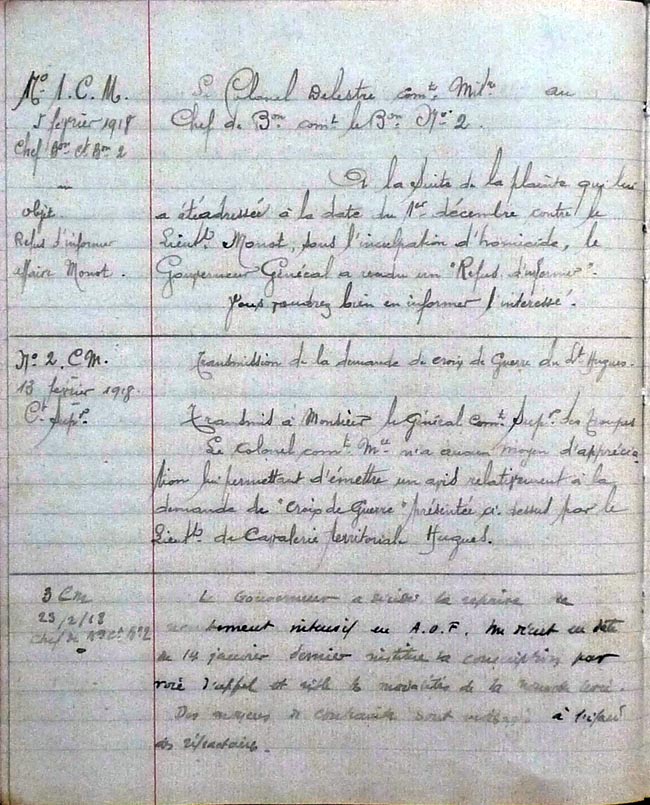 No 1. C. M.
5 février 1918
Chef Bon Ct Bon 2
objet
Refus d'informer
affaire Monot.
Le Colonel Delestre comt. Mitre au
Chef de Bon comt le Bon No 2.
A la suite de la plainte qui lui
a été adressée à la date du 1er décembre contre le
Lieutt Monot, sous l'inculpation d'homicide, le
Gouverneur Général a rendu un "Refus d'informer".
Vous voudrez bien en informer l'intéressé.
No 2. C M.
13 février 1918.
Ct Supr.
Transmission de la demande de croix de Guerre du Lt Hugues.
Transmis à Monsieur le Général Comt Supr. des Troupes
Le colonel comt Mre n'a aucun moyen d'apprécia
tion lui permettant d'émettre un avis relativement à la
demande de "Croix de Guerre" présentée ci dessus par le
Lieutt de Cavalerie territoriale Hugues.
3 C M
23/2/18
Chef de Bon Ct Bon 2
Le Gouverneur a décidé la reprise du
recrutement intensif en A.O.F. Un décret en date
du 14 janvier dernier institue la conscription par
voie d'appel et règle les modalités de la
Des mesures de contrainte sont à l'égard
des réfractaires.